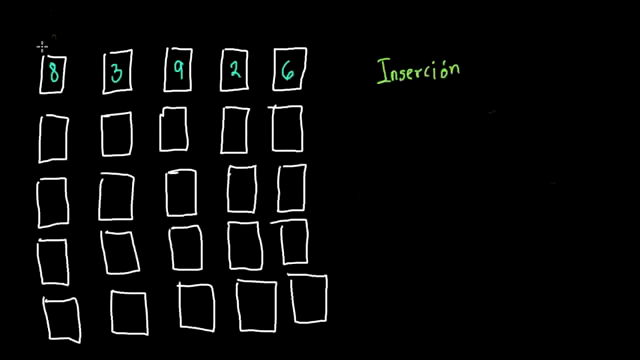 8 3 9 2 6 Inserción